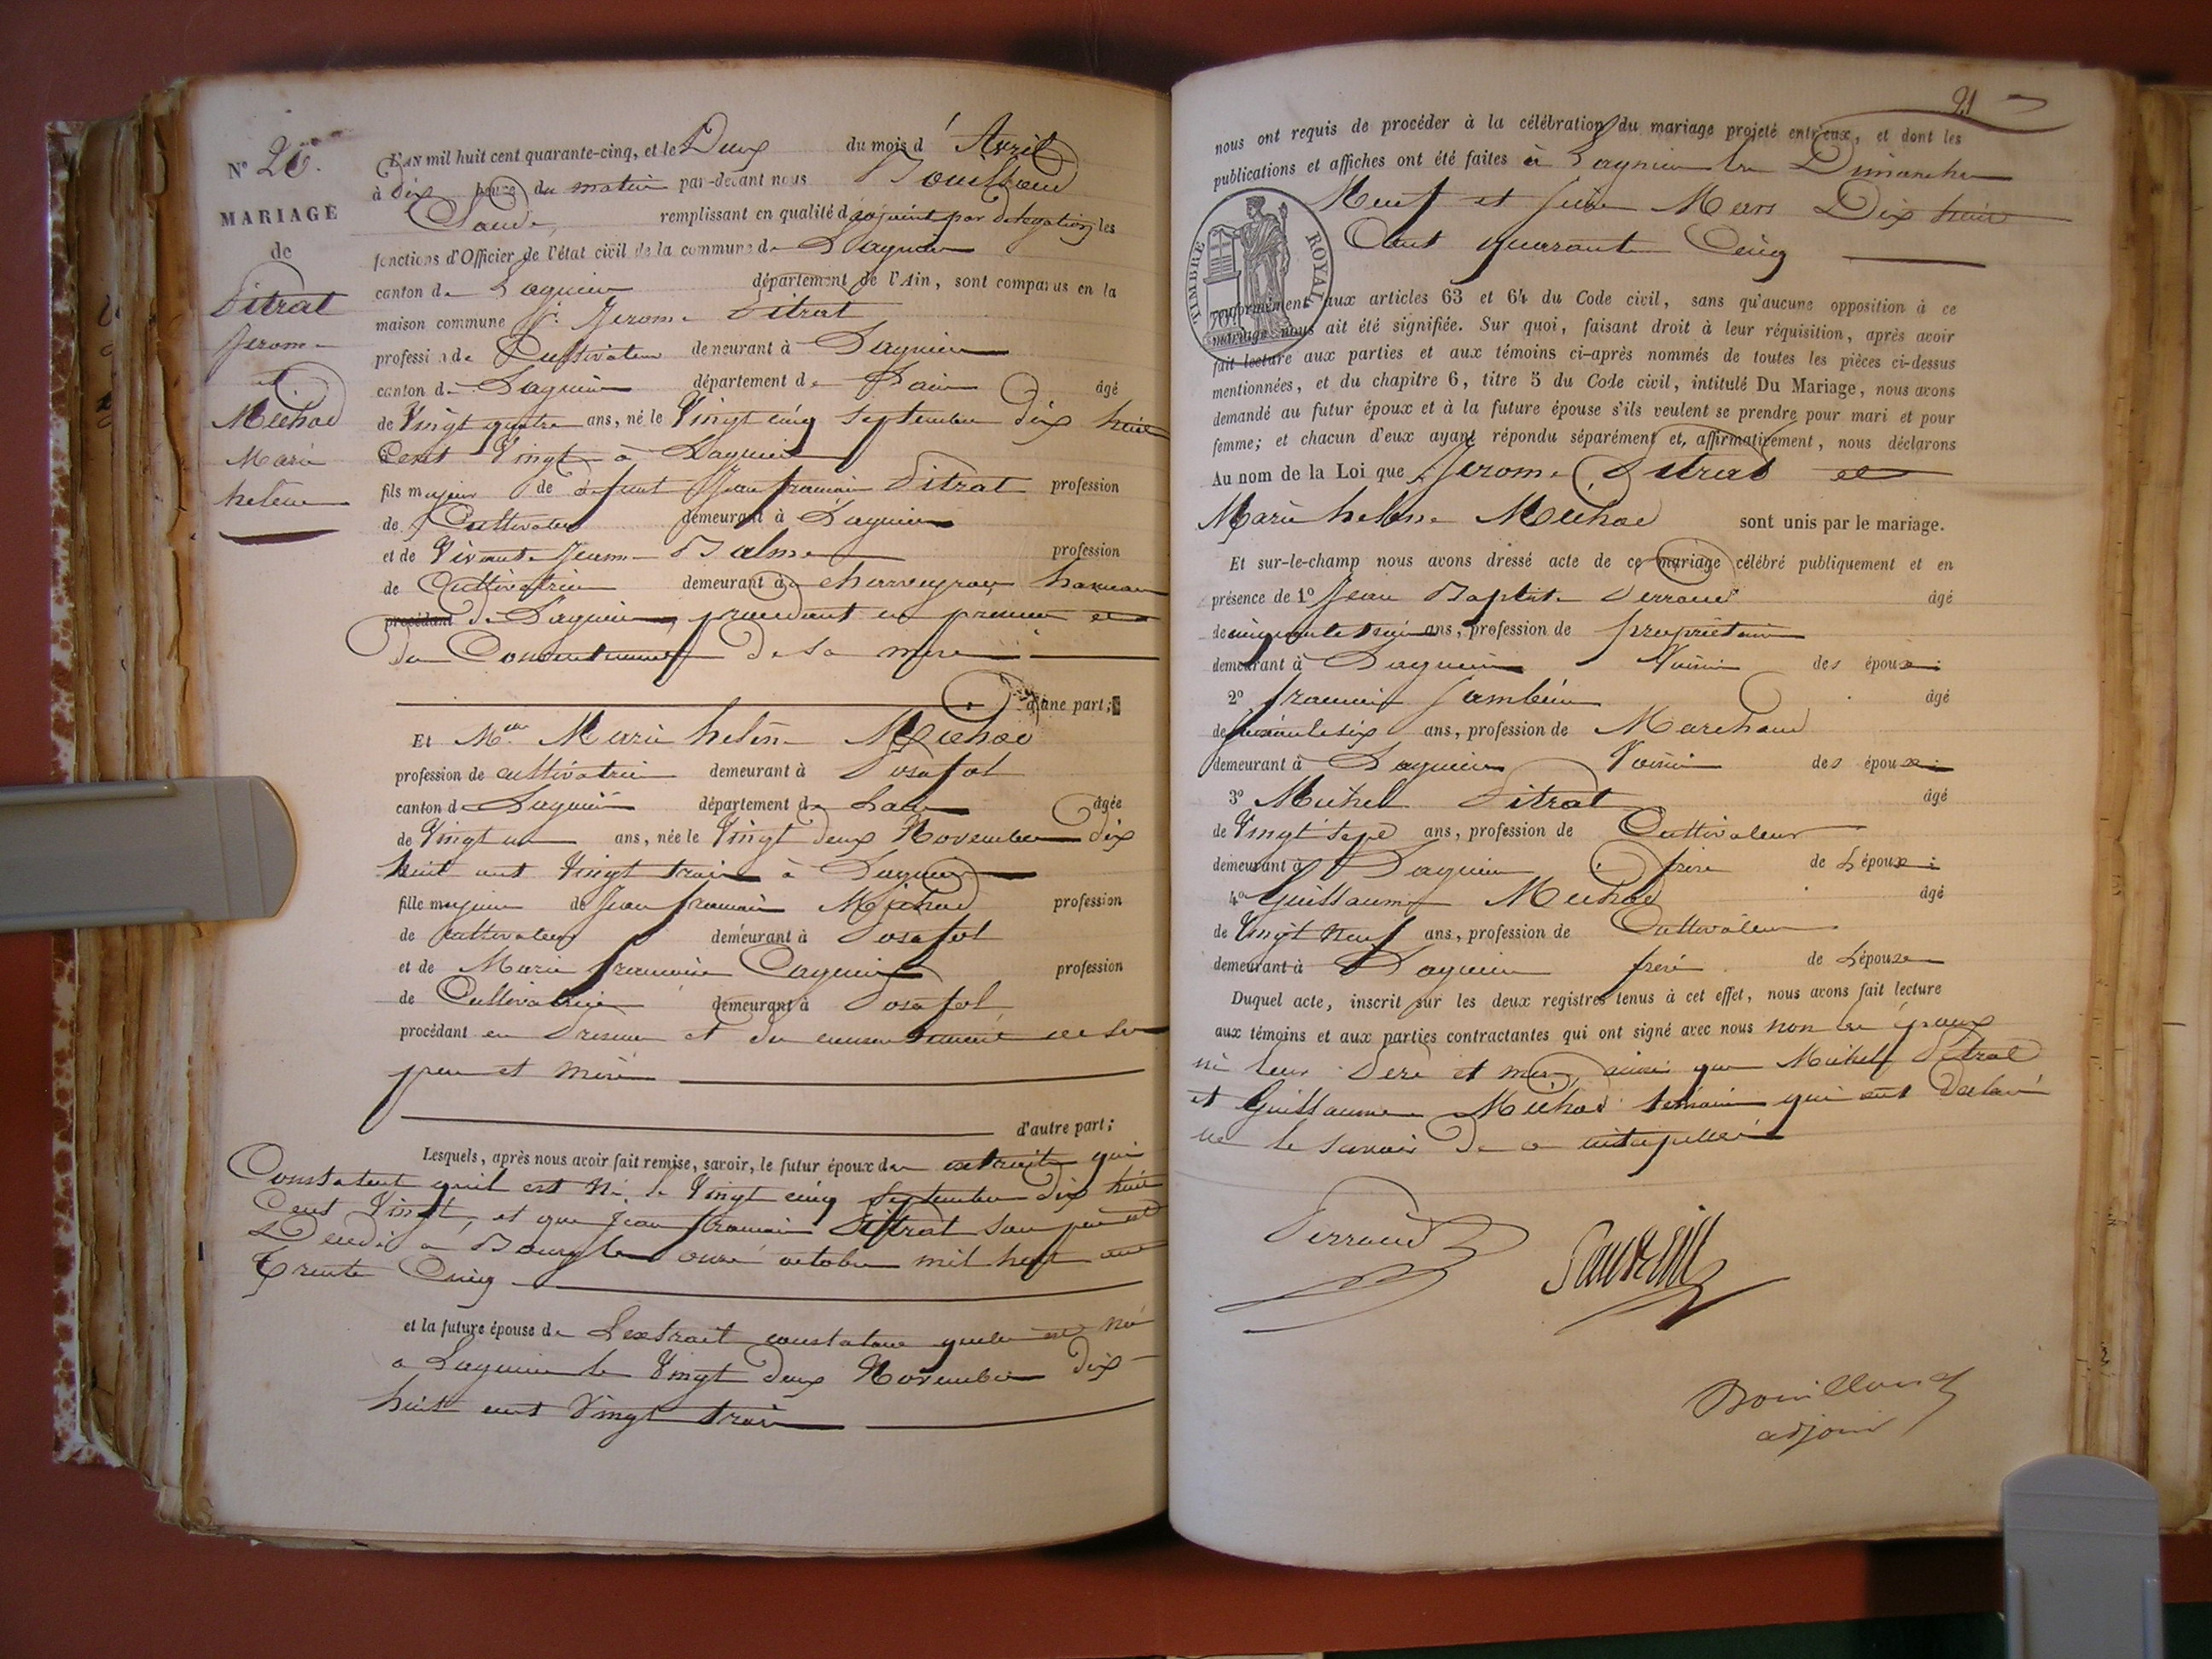 N° 20.
MARIAGE
de
Ditrat
Jerome
et
Michod
Marie
helene
L'AN mil huit cent quarante-cinq, et le Deux du mois d' Avril
à dix heure du matin par-devant nous Bouilloud
Claude, remplissant en qualité d'adjoint par delegation les
fonctions d'Officier de l'état civil de la commune de Lagnieu
canton de Lagnieu département de l'Ain, sont comparus en la
maison commune Sr. Jerome Ditrat
profession de Cultivateur demeurant à Lagnieu
canton de Lagnieu département de Lain âgé
de Vingt quatre ans, né le Vingt cinq septembre dix huit
Cent Vingt à Lagnieu
fils majeur de defunt Jean francois Ditrat profession
de Cultivateur demeurant à Lagnieu
et de Vivante Jeanne Balme profession
de Cultivatrice demeurant à hameau
procédant de Lagnieu, procedant en presence et
du Consentement de sa mere
d'une part;
Et Mlle Marie helene Michod
profession de cultivatrice demeurant à Posafol
canton de Lagnieu département de Lain âgée
de Vingt un ans, née le Vingt deux Novembre dix
huit cent Vingt trois à Lagnieu
fille majeure de Jean francois Michod profession
de cultivateur demeurant à Posafol
et de Marie francoise Cagnin profession
de Cultivatrice demeurant à Posafol
procédant en Presence et du consentement de ses
pere et mere
d'autre part;
Lesquels, après nous avoir fait remise, savoir, le futur époux des extraits qui
Constatent quil est Né le Vingt cinq Septembre dix huit
Cent Vingt, et que Jean francois Ditrat son pere est
Decedé a Bourg le onze octobre mil huit cent
Trente Cinq
et la future épouse de Lextrait constatant quelle est Né
a Lagnieu le Vingt deux Novembre dix
huit cent Vingt trois
21
nous ont requis de procéder à la célébration du mariage projeté entr'eux, et dont les
publications et affiches ont été faites à Lagnieu les Dimanches
Neuf et Seize Mars Dix huit
Cent quarante Cinq
TIMBRE ROYAL
conformément aux articles 63 et 64 du Code civil, sans qu'aucune opposition à ce
mariage nous ait été signifiée. Sur quoi, faisant droit à leur réquisition, après avoir
fait lecture aux parties et aux témoins ci-après nommés de toutes les pièces ci-dessus
mentionnées, et du chapitre 6, titre 5 du Code civil, intitulé Du Mariage, nous avons
demandé au futur époux et à la future épouse s'ils veulent se prendre pour mari et pour
femme; et chacun d'eux ayant répondu séparément et affirmativement, nous déclarons
Au nom de la Loi que Jerome Ditrat et
Marie helene Michod sont unis par le mariage.
Et sur-le-champ nous avons dressé acte de ce mariage célébré publiquement et en
présence de 1° Jean Baptiste Perroud âgé
de ans, profession de proprietaire
demeurant à Lagnieu Voisin des époux;
2° francois âgé
de ans, profession de Marchand
demeurant à Lagnieu Voisin des époux;
3° Michel Ditrat âgé
de Vingt sept ans, profession de Cultivateur
demeurant à Lagnieu frere de Lépoux;
4° Guillaume Michod âgé
de Vingt Neuf ans, profession de Cultivateur
demeurant à Lagnieu frere de Lépouse
Duquel acte, inscrit sur les deux registres tenus à cet effet, nous avons fait lecture
aux témoins et aux parties contractantes qui ont signé avec nous non les époux
ni leur Pere et mere, ainsi que Michel Ditrat
et Guillaume Michod témoin qui ont Declaré
ne le savoir de ce interpellé
Perroud
Bouilloud
adjoint